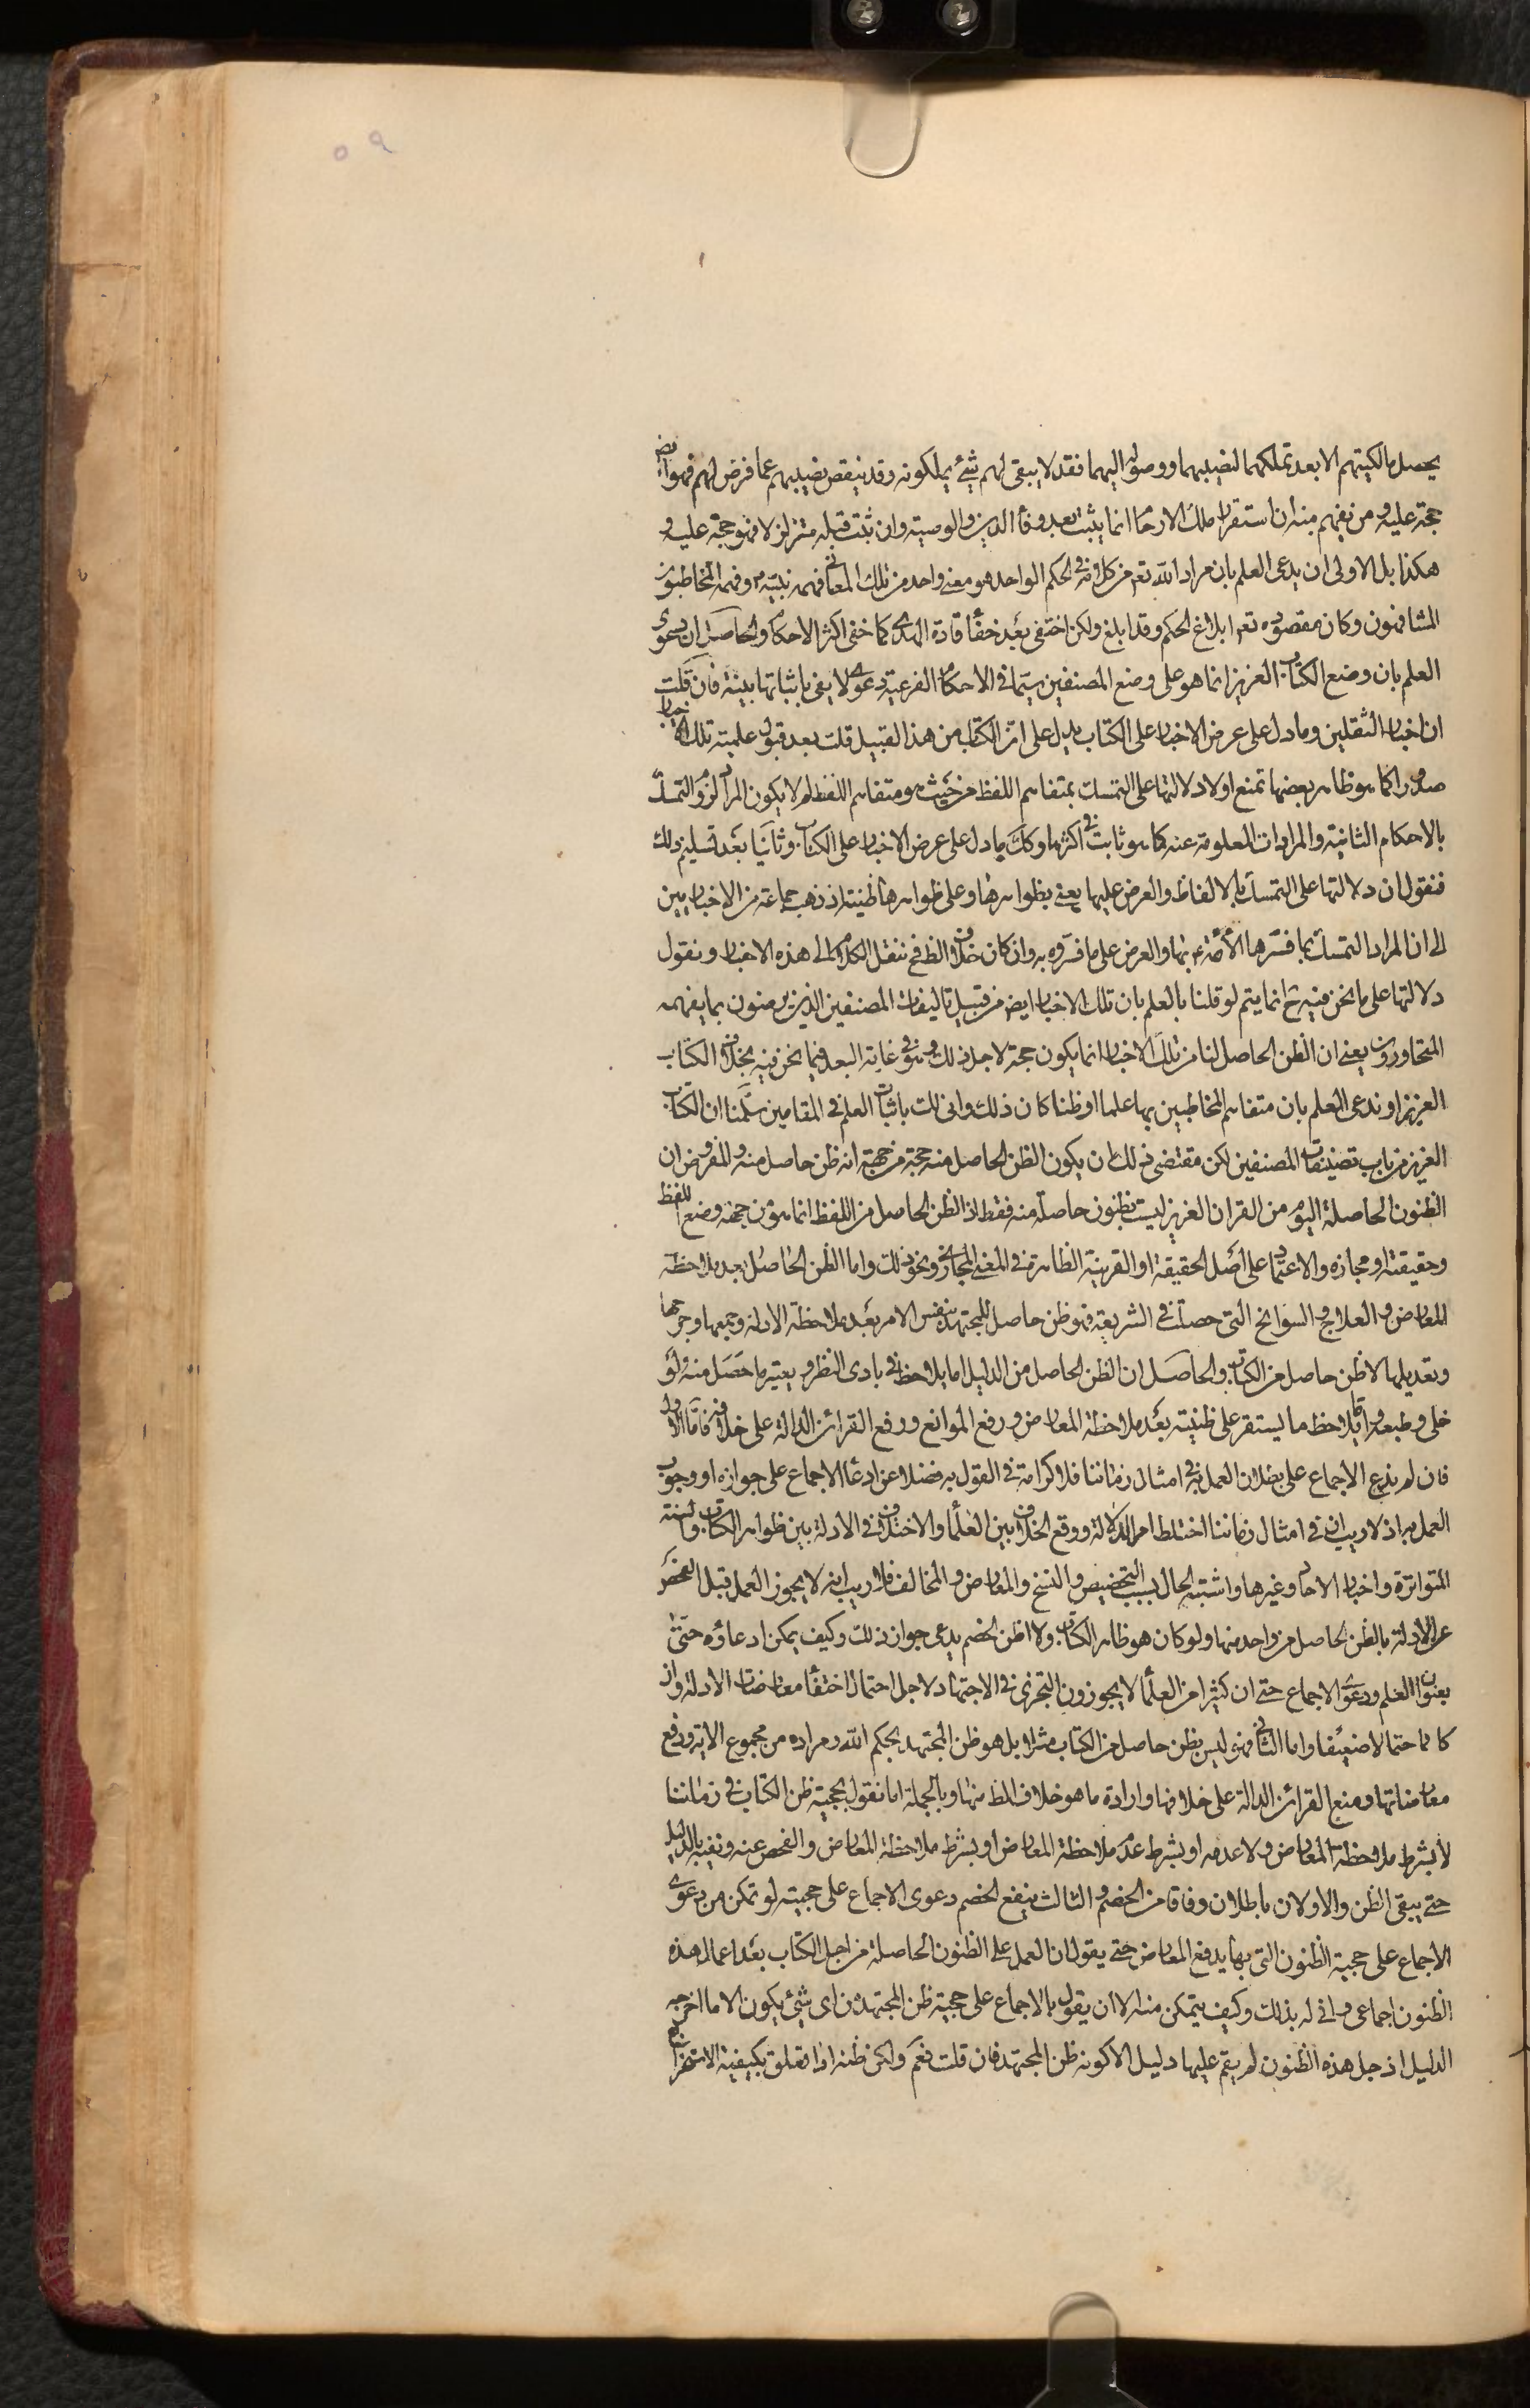 ٥٩
يحصل مالكيتهم الا بعد تملكهما لنصيبهما ووصوله اليهما فقد لا يبقى لهم شئ يملكونه وقد ينقص نصيبهم عما فرض لهم فهو ايض
حجة عليه ومن يفهم منه ان استقرار ملك الارحا انما يثبت بعد وفا الدين والوصية وان ثبت قبله متزلزلا فهو حجة عليه و
هكذا بل الاولى ان يدعى العلم بان مراد الله تعم من كل اية في الحكم الواحد هو معنى واحد من تلك المعانى فهمه نبيه ص وفهمه المخاطبون
المشافهون وكان مقصوده تعم ابلاغ الحكم وقد ابلغ ولكن اختفى بعد خفأ قادة الهدى كما خفى اكثر الاحكام والحاصل ان دعوى
العلم بان وضع الكتاب العزيز انما هو على وضع المصنفين سيما في الاحكام الفرعية دعوى لا يفى باثباتها بينة فان قلت
ان اخبار الثقلين وما دل على عرض الاخبار على الكتاب يدل على ان الكتاب من هذا القبيل قلت بعد قبول علمية تلك الاخبار
صدورا كما هو ظاهر بعضها تمنع اولا دلالتها على التمسك بمتفاهم اللفظ من حيث هو متفاهم اللفظ لم لا يكون المراد لزوم التمسك
بالاحكام الثابتة والمرادات المعلومة عنه كما هو ثابت في اكثرها وكك ما دل على عرض الاخبار على الكتاب وثانيا بعد تسليم ذلك
فنقول ان دلالتها على التمسك بالالفاظ والعرض عليها يعنى بظواهرها وعلى ظواهرها ظنية اذ ذهب جماعة من الاخباريين
الى ان المراد التمسك بما فسرها الأئمة ع بها والعرض على ما فسروه به وان كان خلاف الظ فح ننقل الكلام الى هذه الاخبار ونقول
دلالتها على ما نحن فيه ح انما يتم لو قلنا بالعلم بان تلك الاخبار ايض من قبيل تاليفات المصنفين الذين يرضون بما يفهمه
المتحاورون يعنى ان الظن الحاصل لنا من تلك الاخبار انما يكون حجة لاجل ذلك وهو في غاية البعد فيما نحن فيه بخلاف الكتاب
العزيز او ندعى العلم بان متفاهم المخاطبين بها علما او ظنا كان ذلك وانى لك باثبات العلم في المقامين سلمنا ان الكتاب
العزيز من باب تصنيفات المصنفين لكن مقتضى ذلك ان يكون الظن الحاصل منه حجة من جهة انه ظن حاصل منه والمفروض ان
الظنون الحاصلة اليوم من القران العزيز ليست بظنون حاصلة منه فقط اذ الظن الحاصل من اللفظ انما هو من جهة وضع اللفظ
وحقيقته او مجازه والاعتماد على اصل الحقيقة او القرينة الظاهرة في المعنى المجازي ونحو ذلك واما الظن الحاصل بعد ملاحظة
المعارض والعلاج والسوانح التي حصلت في الشريعة فهو ظن حاصل للمجتهد بنفس الامر بعد ملاحظة الادلة وجمعها وجرحها
وتعديلها لا ظن حاصل من الكتاب والحاصل ان الظن الحاصل من الدليل اما يلاحظ في بادى النظر ويعتبر ما حصل منه ولو
خلى وطبعه واما يلاحظ ما يستقر على ظنيته بعد ملاحظة المعارض ورفع الموانع ورفع القرائن الدالة على خلافه فاما الاول
فان لم يدع الاجماع على بطلان العمل به في امثال زماننا فلا كرامة في القول به فضلا عن ادعا الاجماع على جوازه او وجوب
العمل به اذ لا ريب ان في امثال زماننا اختلط امر الدلالة ووقع الخلاف بين العلمأ والاختلاف في الادلة بين ظواهر الكتاب والسنة
المتواترة واخبار الاحاد وغيرها واشتبه الحال بسبب التخصيص والنسخ والمعارض والمخالف فلا ريب انه لا يجوز العمل قبل الفحص
عن الادلة بالظن الحاصل من واحد منها ولو كان هو ظاهر الكتاب ولا اظن الخصم يدعى جواز ذلك وكيف يمكن ادعاؤه حتى
بعنوان العلم ودعوى الاجماع حتى ان كثيرا من العلمأ لا يجوزون التجزي في الاجتهاد لاجل احتمال اختفأ معارضات الادلة وان
كان احتمالا ضعيفا واما الثاني فهو ليس بظن حاصل من الكتاب مثلا بل هو ظن المجتهد بحكم الله ومراده من مجموع الاية ورفع
معارضاتها ومنع القرائن الدالة على خلافها وارادة ما هو خلاف الظ منها وبالجملة اما نقول بحجية ظن الكتاب في زماننا
لا بشرط ملاحظة المعارض ولا عدمه او بشرط عدم ملاحظة المعارض او بشرط ملاحظة المعارض والفحص عنه ونفيه بالدليل
حتى يبقى الظن والاولان باطلان وفاقا من الخصم والثالث ينفع الخصم دعوى الاجماع على حجيته لو تمكن من دعوى
الاجماع على حجية الظنون التى بها يدفع المعارض حتى يقول ان العمل على الظنون الحاصلة من اجل الكتاب بعد اعمال هذه
الظنون اجماعى وانى له بذلك وكيف يتمكن منه الا ان يقول بالاجماع على حجية ظن المجتهد من اى شئ يكون الا ما اخرجه
الدليل اذ جل هذه الظنون لم يقم عليها دليل الا كونه ظن المجتهد فان قلت نعم ولكن ظنه اذا تعلق بكيفية الاستخراج